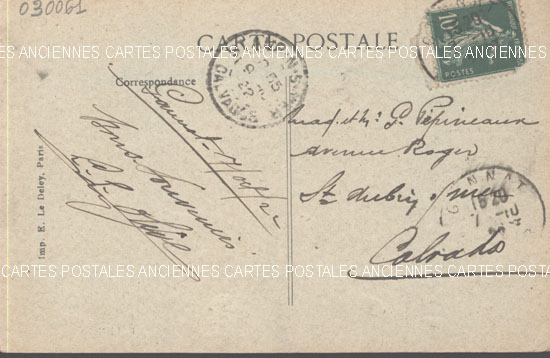 030061
CARTE POSTALE
CARTES POSTALES ANCIENNES CARTES POSTALES ANCIENNES CARTES POSTALES ANCIENNES
10
POSTES
Correspondance
Gannat
Bons Souvenirs
Mad et Mr P. Pépineaux
Avenue Roger
St Aubin s/mer
Calvados
CALVADOS
GANNAT
Imp. E. Le Deley, Paris
CARTES POSTALES ANCIENNES CARTES POSTALES ANCIENNES CARTES POSTALES ANCIENNES